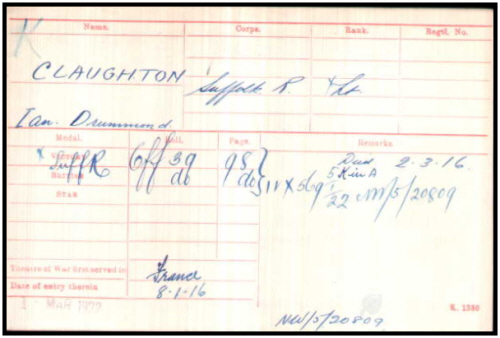 K
Name. Corps. Rank. Regtl. No.
CLAUGHTON Suffolk R Lt
Ian. Drummond.
Medal. Roll. Page. Remarks
Victory Off 39 98 Died 2.3.16.
Suff R
British do do K in A
Star NW/5/20809
Theatre of War first served in France
Date of entry therein 8-1-16
K. 1380
NW/5/20809